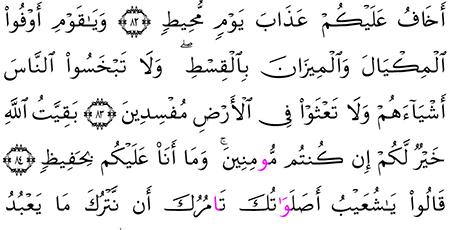 أَخَافُ عَلَيْكُمْ عَذَابَ يَوْمٖ مُّحِيطٖ ۝٨٣ وَيَٰقَوْمِ أَوْفُواْ
اُلْمِكْيَالَ وَالْمِيزَانَ بِالْقِسْطِۖ وَلَا تَبْخَسُواْ اُلنَّاسَ
أَشْيَآءَهُمْ وَلَا تَعْثَوْاْ فِے اِلْأَرْضِ مُفْسِدِينَ ۝٨٣ بَقِيَّتُ اُللَّهِ
خَيْرٞ لَّكُمْ إِن كُنتُم مُّومِنِينَۚ وَمَا أَنَا۠ عَلَيْكُم بِحَفِيظٖ ۝٨٤
قَالُواْ يَٰشُعَيْبُ أَصَلَوَٰتُكَ تَامُرُكَ أَن نَّتْرُكَ مَا يَعْبُدُ